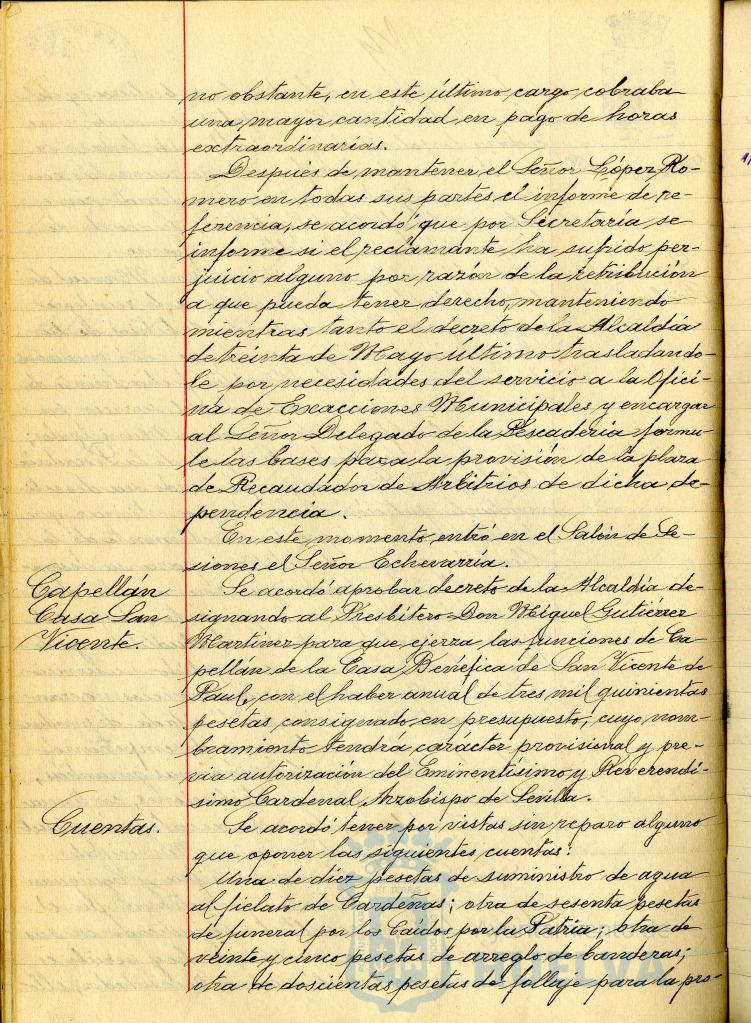 no obstante, en este último cargo cobraba
una mayor cantidad en pago de horas
extraordinarias.
Después de mantener el Señor López Ro-
mero en todas sus partes el informe de re-
ferencia, se acordó que por Secretaría se
informe si el reclamante ha sufrido per-
juicio alguno por razón de la retribución
a que pueda tener derecho, manteniendo
mientras tanto el decreto de la Alcaldía
de treinta de Mayo último trasladando-
le por necesidades del servicio a la Ofici-
na de Exacciones Municipales y encargar
al Señor Delegado de la Pescadería formu-
le las bases para la provisión de la plaza
de Recaudador de Arbitrios de dicha de-
pendencia.
En este momento entró en el Salón de Se-
siones el Señor Echevarría.
Capellán
Casa San
Vicente.
Se acordó aprobar decreto de la Alcaldía de-
signando al Presbítero Don Miguel Gutiérrez
Martinez para que ejerza las funciones de Ca-
pellán de la Casa Benéfica de San Vicente de
Paul, con el haber anual de tres mil quinientas
pesetas consignado en presupuesto, cuyo nom-
bramiento tendrá carácter provisional y pre-
via autorización del Eminentísimo y Reverendí-
simo Cardenal Arzobispo de Sevilla.
Cuentas.
Se acordó tener por vistas sin reparo alguno
que oponer las siguientes cuentas:
Una de diez pesetas de suministro de agua
al fielato de Cardeñas; otra de sesenta pesetas
de funeral por los Caídos por la Patria; otra de
veinte y cinco pesetas de arreglo de banderas;
otra de doscientas pesetas de follaje para la pro-
HUELVA